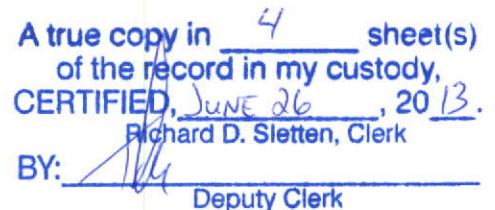 A true copy in 4 sheet(s)
of the record in my custody,
CERTIFIED, JUNE 26, 20 13.
Richard D. Sletten, Clerk
BY:
Deputy Clerk